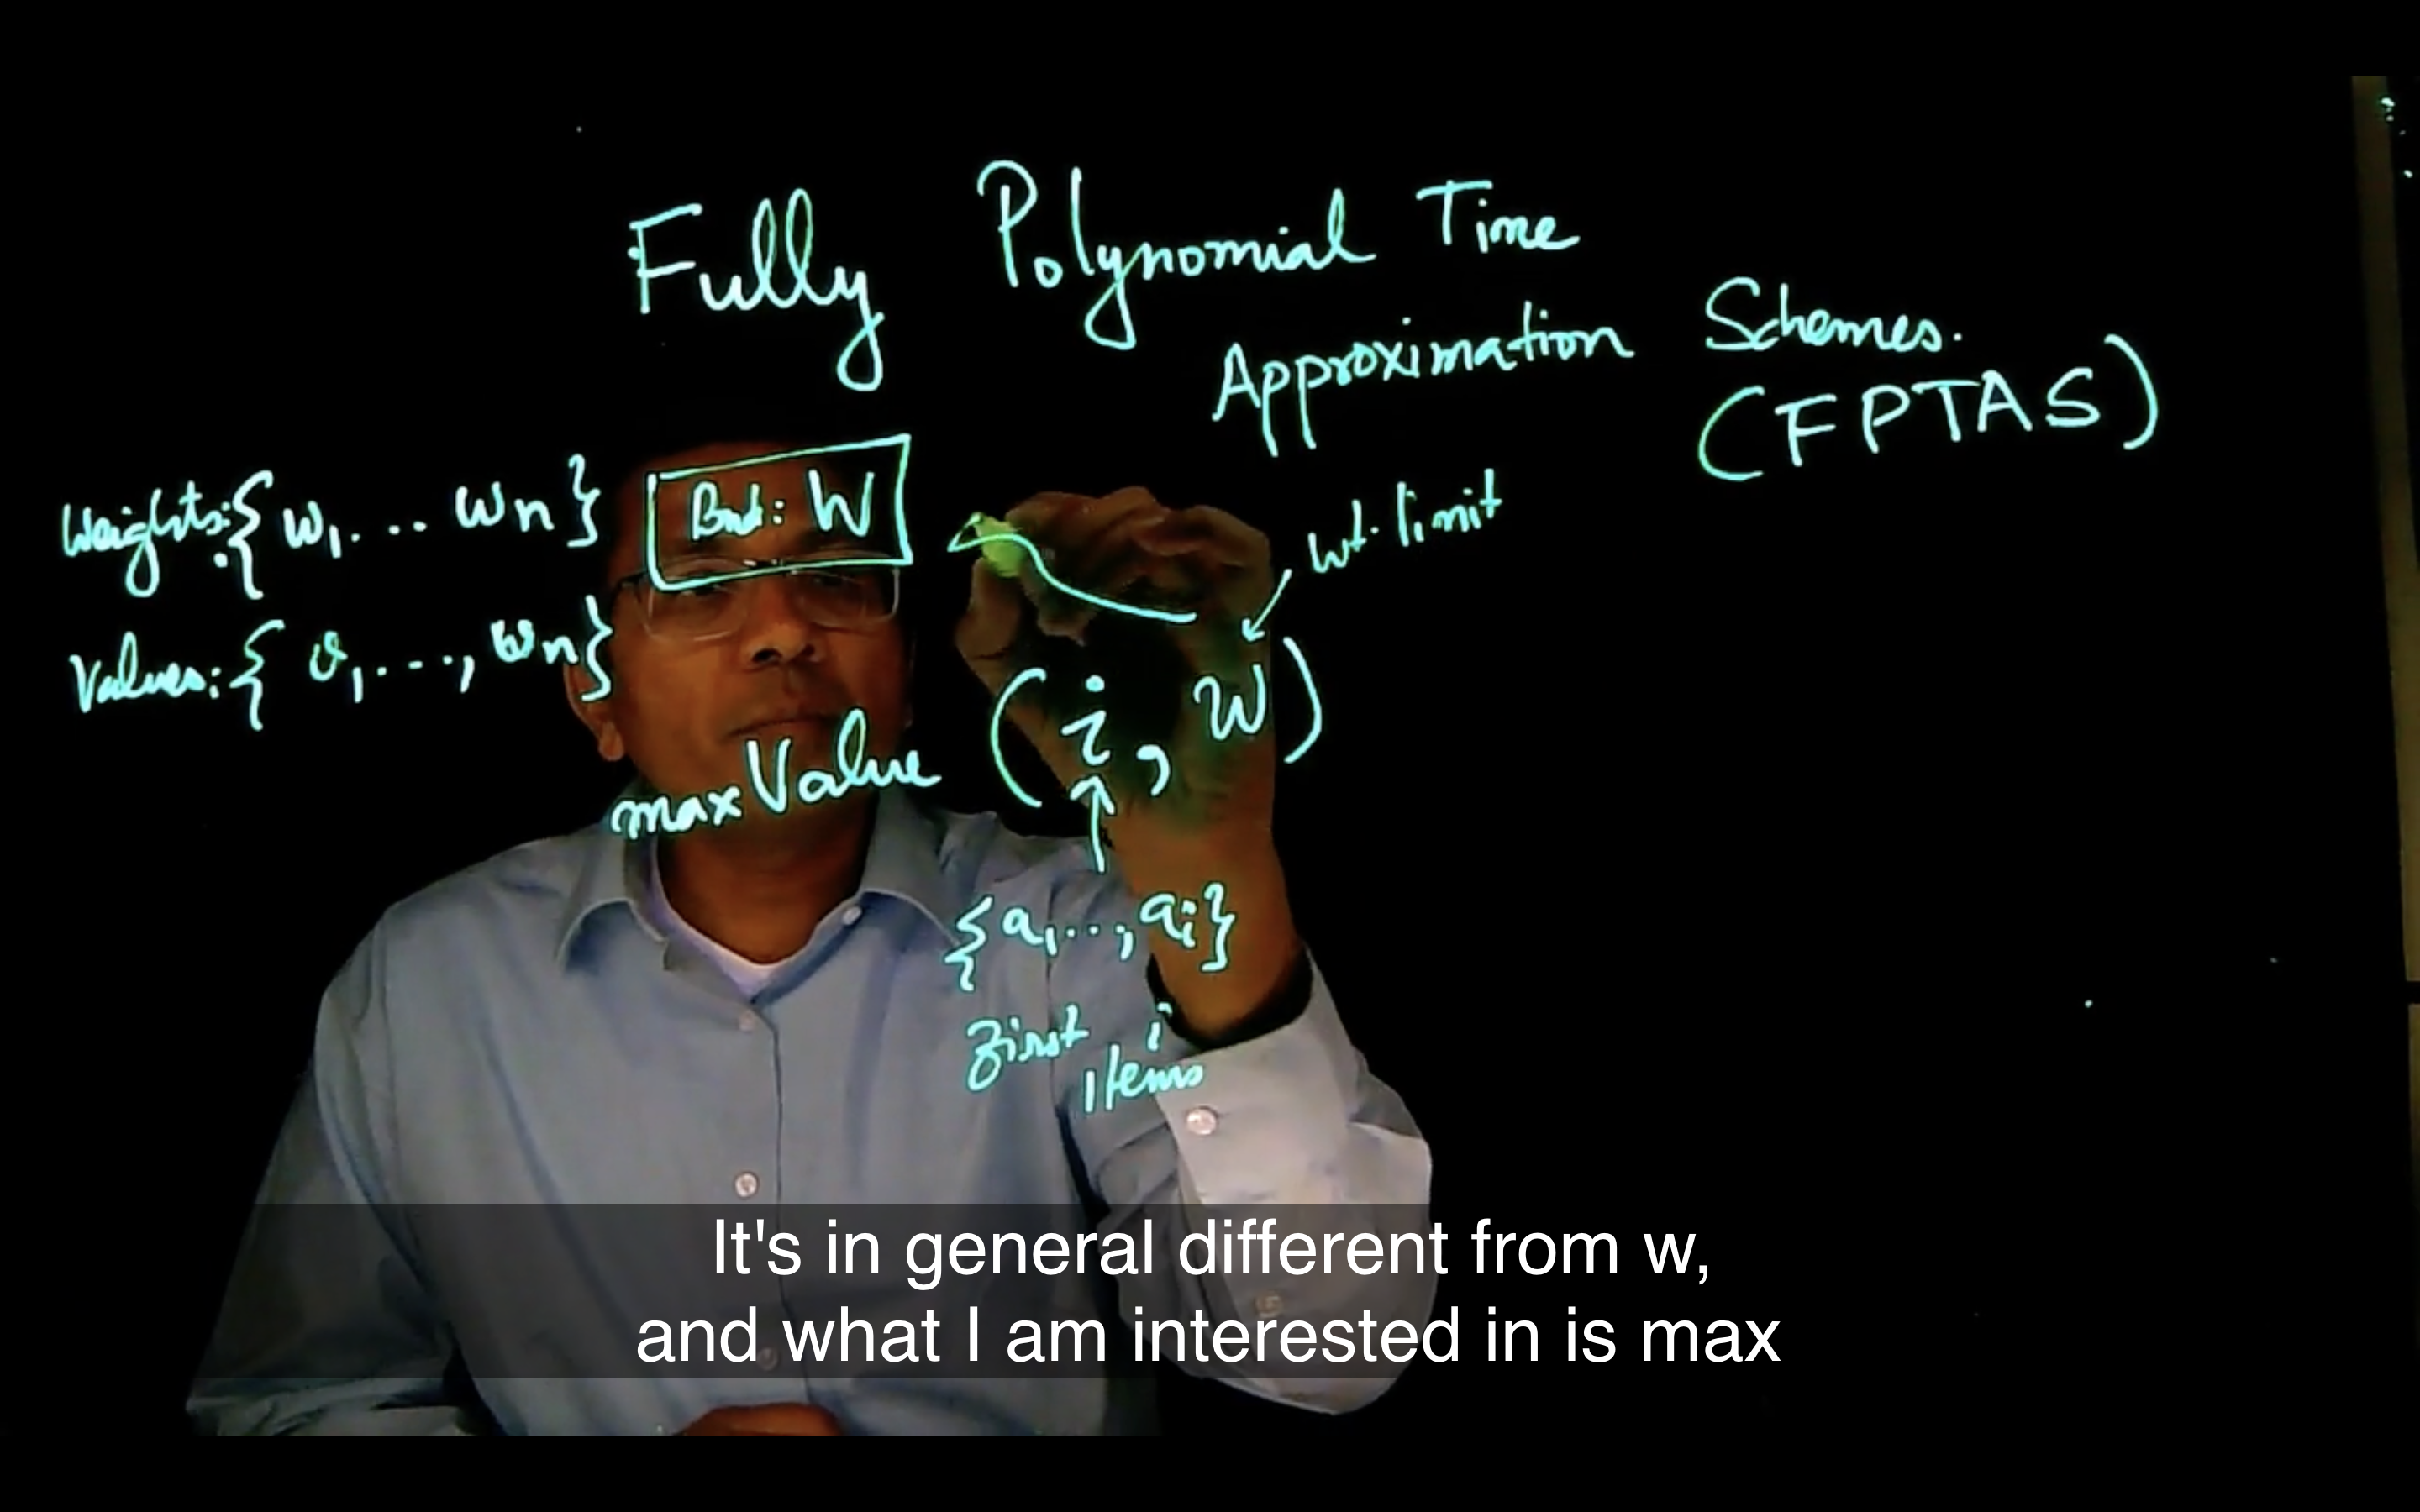 Fully Polynomial Time
Approximation Schemes.
(FPTAS)
Weights: { w1. . . wn } Bnd: W
wt. limit
Values: { v1, . . . , wn }
maxValue ( i , W )
{ a1 . . , ai }
First i
Items
It's in general different from w,
and what I am interested in is max